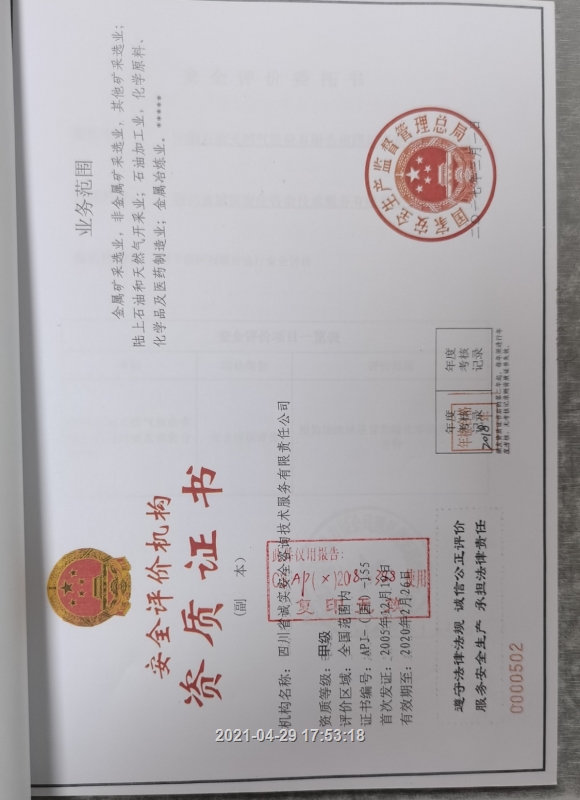 安全评价机构
资质证书
(副 本)
机构名称：四川省诚实安全咨询技术服务有限责任公司
资质等级：甲级
评价区域：全国范围内
证书编号：APJ-(国)-155
首次发证：2005年12月19日
有效期至：2020年2月26日
遵守法律法规 诚信公正评价
服务安全生产 承担法律责任
0000502
业务范围
金属矿采选业，非金属矿采选业，其他矿采选业；
陆上石油和天然气开采业；石油加工业，化学原料、
化学品及医药制造业；金属冶炼业。*****
年度
考核
记录
2018
年度
考核
记录
国家安全生产监督管理总局
二〇一七年二月
2021-04-29 17:53:18